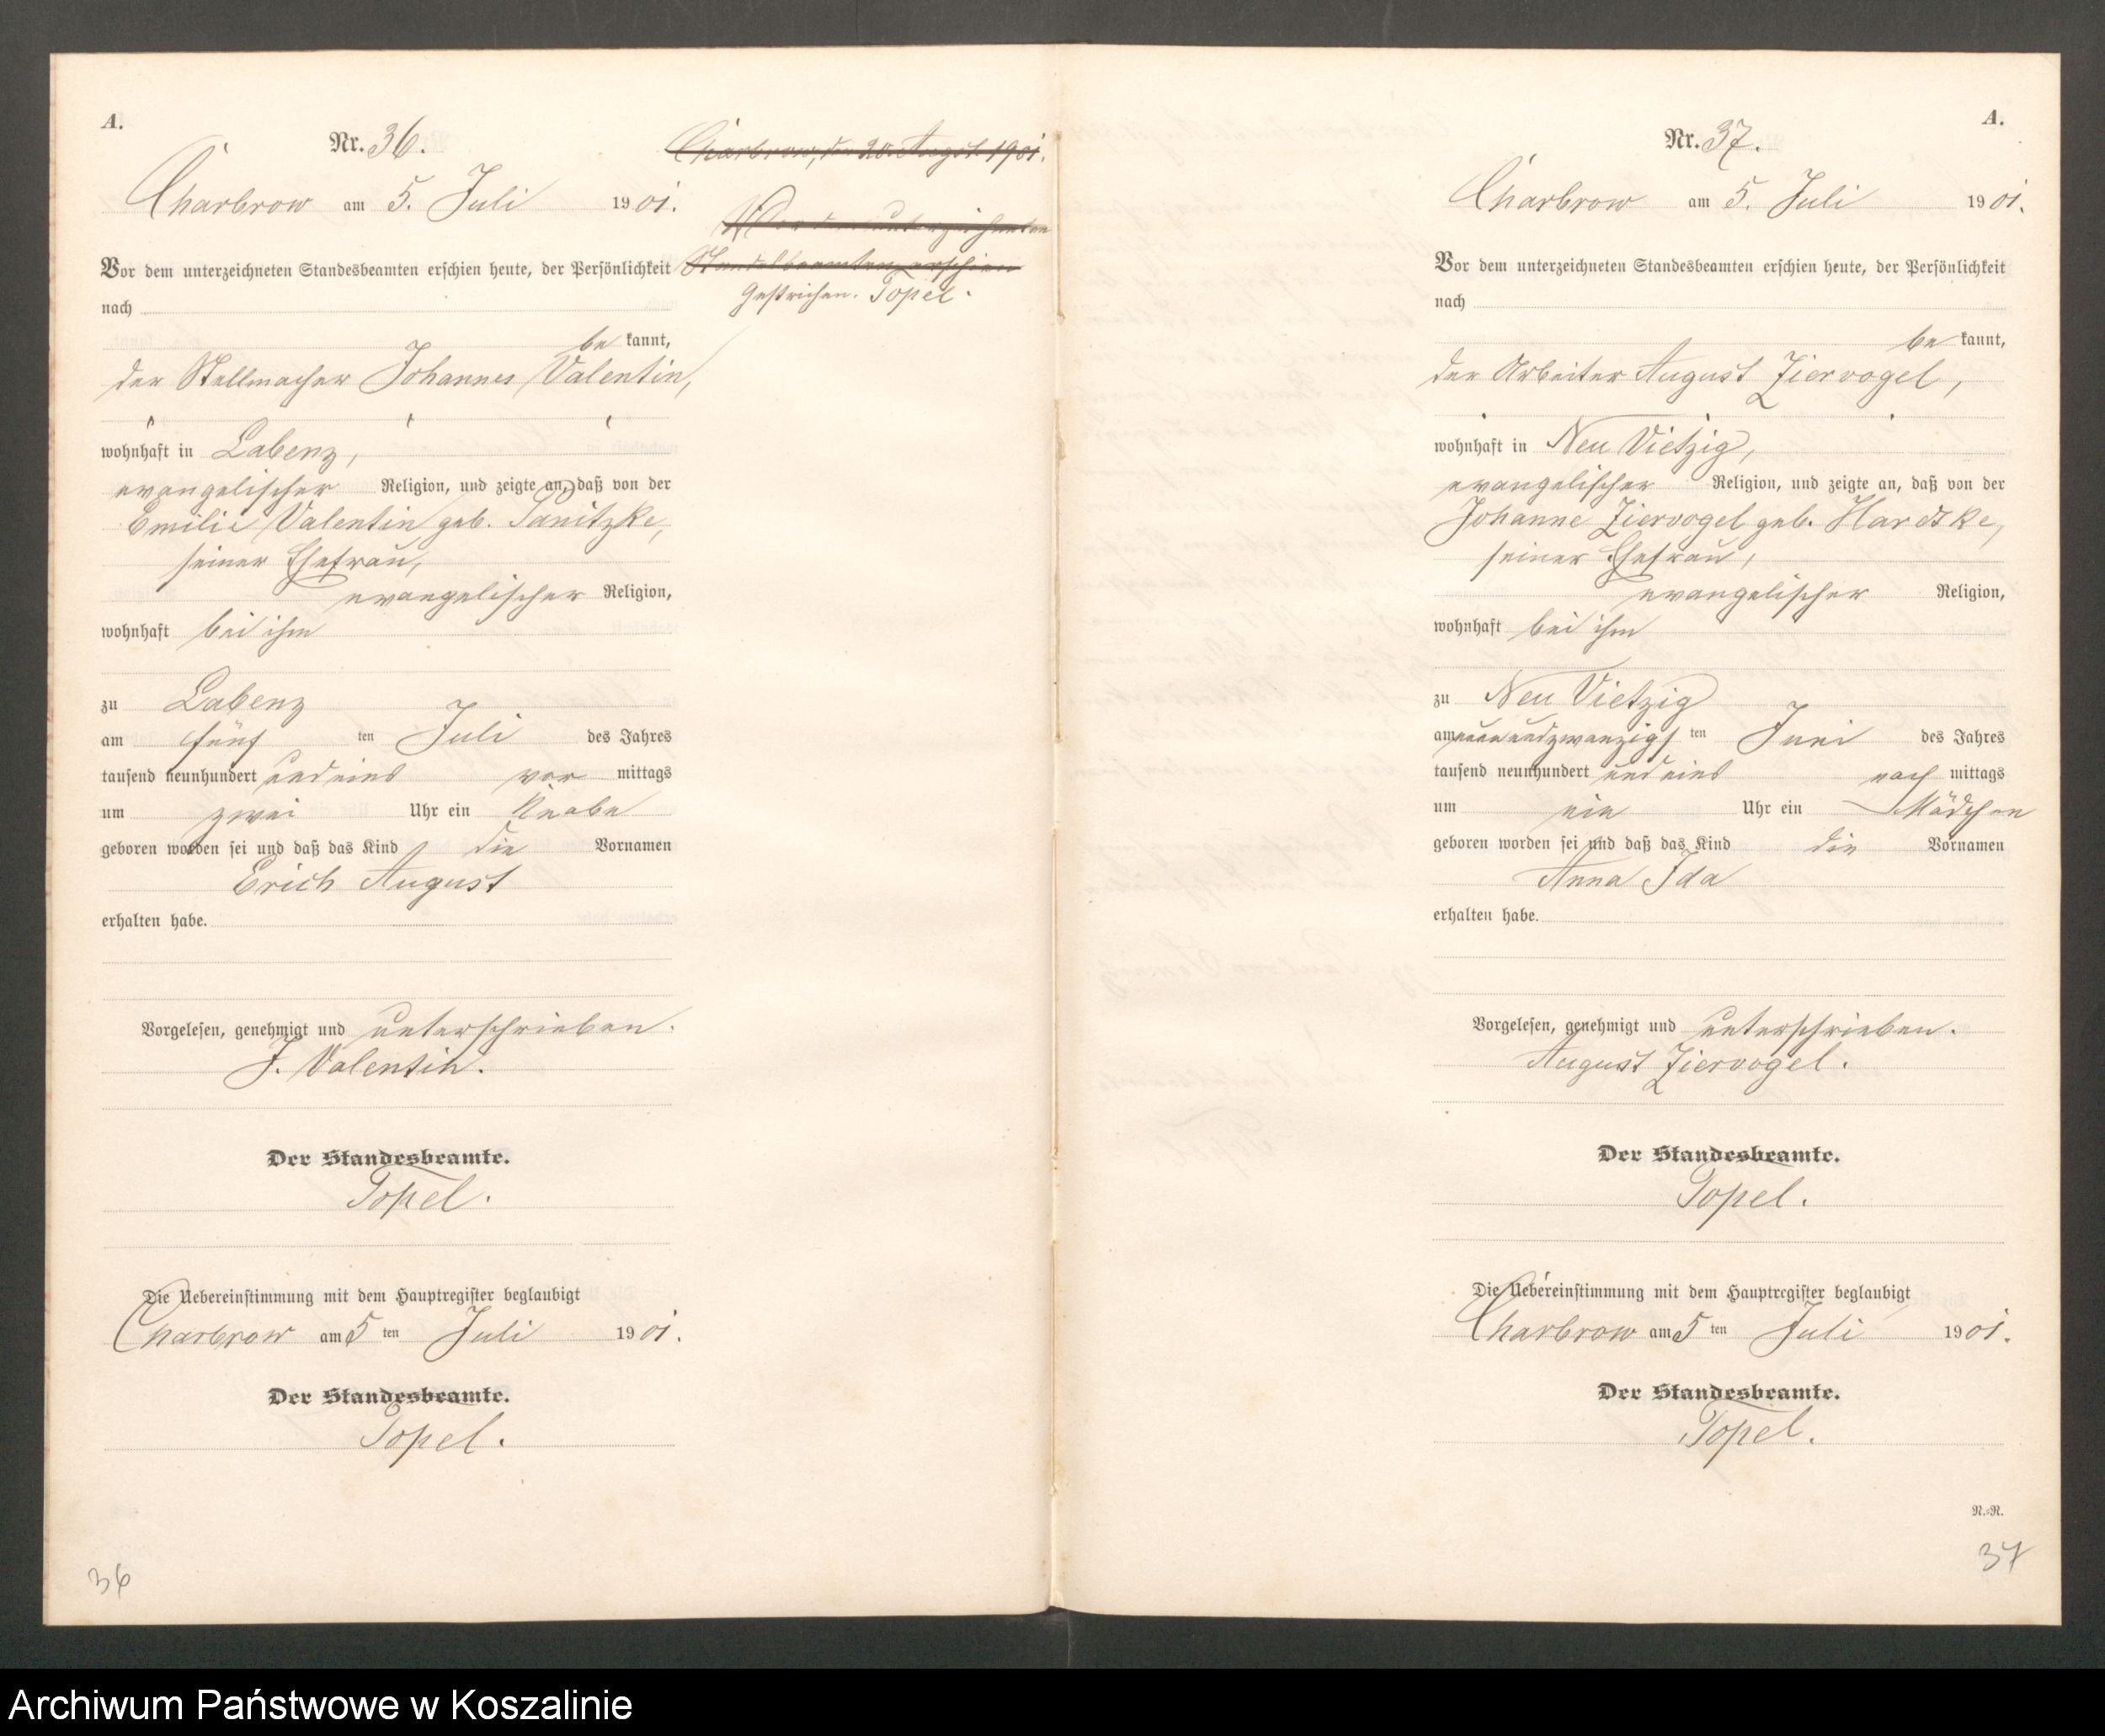 A.
Nr. 36.
Charbrow am 5. Juli 1901.
Vor dem unterzeichneten Standesbeamten erschien heute, der Persönlichkeit
nach
be kannt,
der Stellmacher Johannes Valentin,
wohnhaft in Labenz,
evangelischer Religion, und zeigte an, daß von der
Emilie Valentin geb. Panitzke,
seiner Ehefrau,
evangelischer Religion,
wohnhaft bei ihm
zu Labenz
am fünf ten Juli des Jahres
tausend neunhundert und eins vor mittags
um zwei Uhr ein Knabe
geboren worden sei und daß das Kind die Vornamen
Erich August
erhalten habe.
Vorgelesen, genehmigt und unterschrieben.
J. Valentin.
Der Standesbeamte.
Topel.
Die Uebereinstimmung mit dem Hauptregister beglaubigt
Charbrow am 5 ten Juli 1901.
Der Standesbeamte.
Topel.
36
Charbrow, den 20. August 1901.
Vor dem unterzeichneten
Standesbeamten erschien
Gestrichen. Topel.
A.
Nr. 37.
Charbrow am 5. Juli 1901.
Vor dem unterzeichneten Standesbeamten erschien heute, der Persönlichkeit
nach
be kannt,
der Arbeiter August Ziervogel,
wohnhaft in Neu Vietzig,
evangelischer Religion, und zeigte an, daß von der
Johanne Ziervogel geb.
seiner Ehefrau,
evangelischer Religion,
wohnhaft bei ihm
zu Neu Vietzig
am neunundzwanzigs ten Juni des Jahres
tausend neunhundert und eins nach mittags
um ein Uhr ein Mädchen
geboren worden sei und daß das Kind die Vornamen
Anna Ida
erhalten habe.
Vorgelesen, genehmigt und unterschrieben.
August Ziervogel.
Der Standesbeamte.
Topel.
Die Uebereinstimmung mit dem Hauptregister beglaubigt
Charbrow am 5 ten Juli 1901.
Der Standesbeamte.
Topel.
N.-R.
37
Archiwum Państwowe w Koszalinie